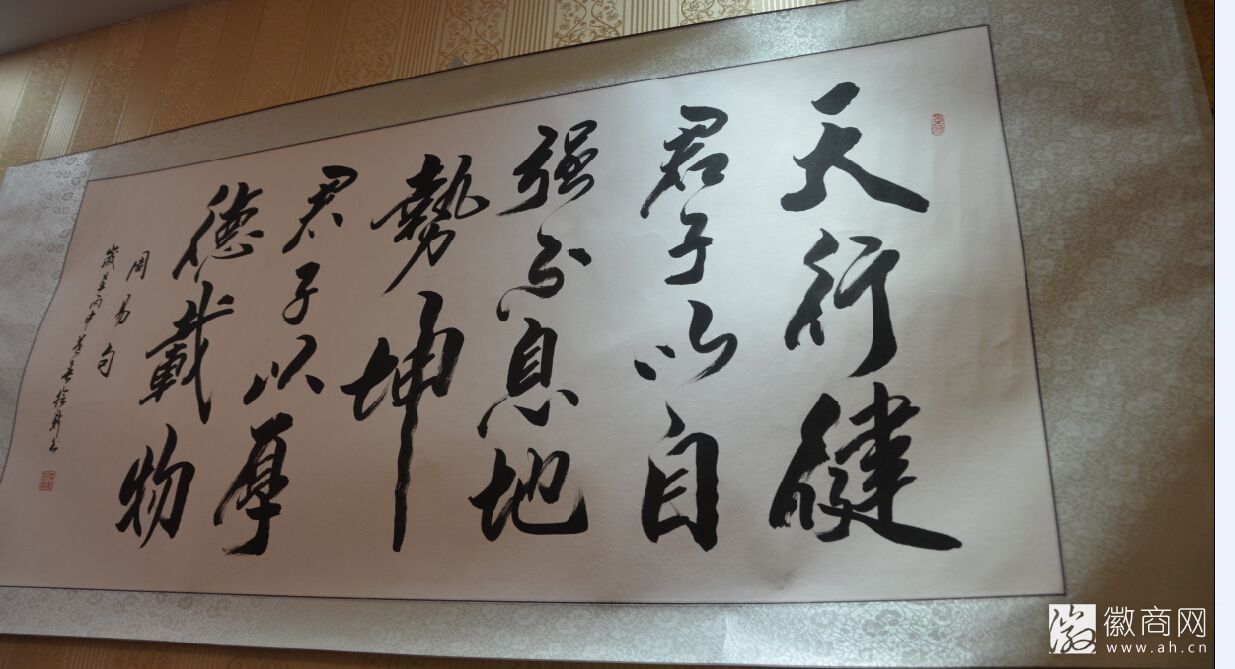 天行健
君子以自
强不息地
勢坤
君子以厚
德載物
周易句
徽商网
www.ah.cn